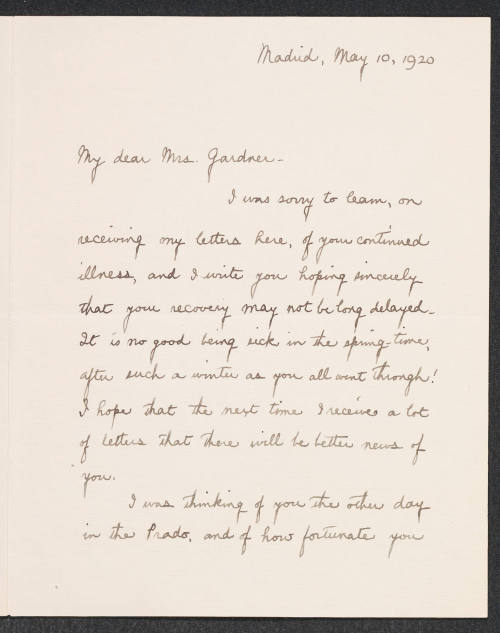 Madrid, May 10, 1920
My dear Mrs. Gardner-
I was sorry to learn, on
receiving my letters here, of your continued
illness, and I write you hoping sincerely
that your recovery may not be long delayed-
It is no good being sick in the spring-time,
after such a winter as you all went through!
I hope that the next time I receive a lot
of letters that there will be better news of
you.
I was thinking of you the other day
in the Prado, and of how fortunate you